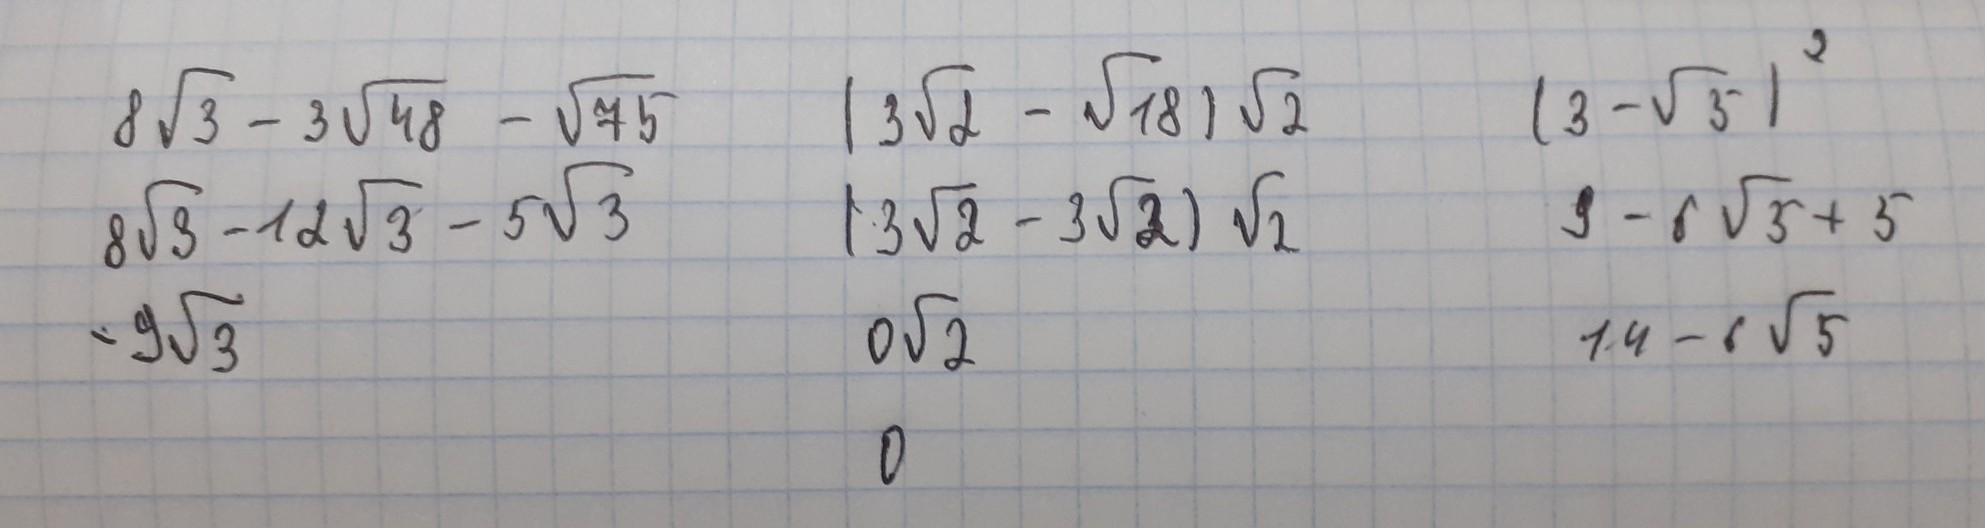 8√3 - 3√48 - √75
8√3 - 12√3 - 5√3
-9√3
(3√2 - √18)√2
(3√2 - 3√2)√2
0√2
0
(3 - √5)²
9 - 6√5 + 5
14 - 6√5